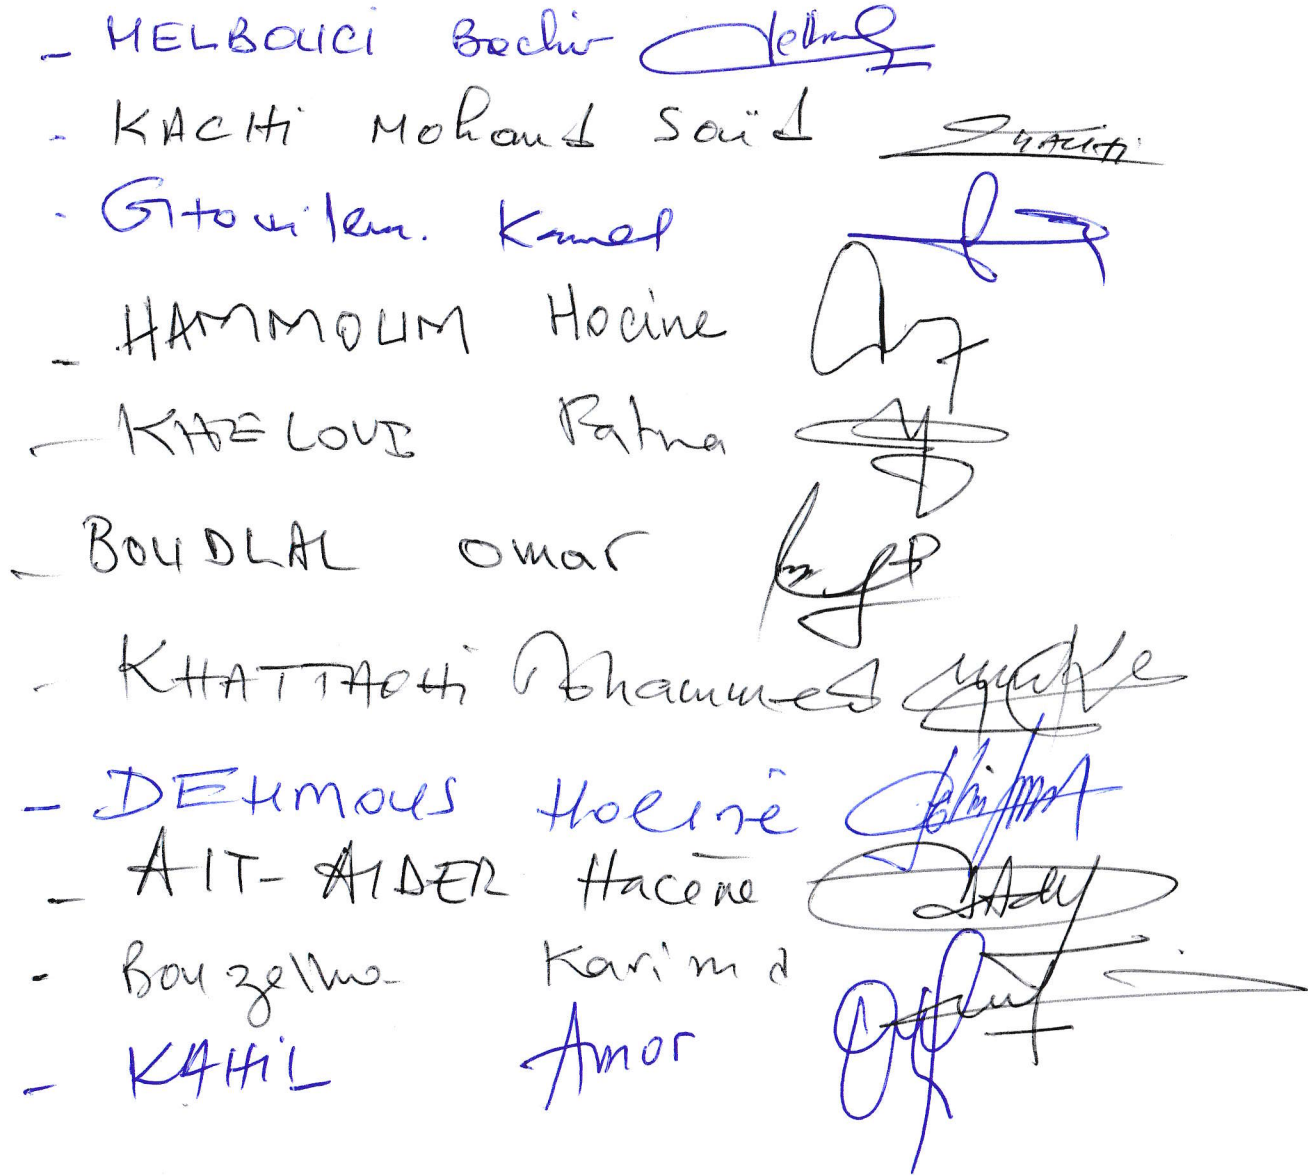 - MELBOUCI Bachir
- KACHi Mohand Saïd KACHi
- Kamel
- HAMMOUM Hocine
- KHELOUI Fatma
- BOUDLAL Omar
- KHATTAOUi Mohammed
- DEHMOUS Hocine
- AIT-AIDER Hacene
- Bouzelha Karima
- KAHiL Amor